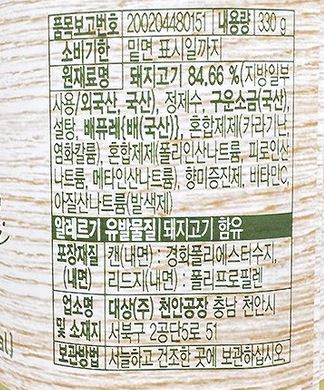 품목보고번호 200204480151 내용량 330 g
소비기한 밑면 표시일까지
원재료명 돼지고기 84.66 %(지방일부
사용/외국산, 국산), 정제수, 구운소금(국산),
설탕, 배퓨레{배(국산)}, 혼합제제(카라기난,
염화칼륨), 혼합제제(폴리인산나트륨, 피로인산
나트륨, 메타인산나트륨), 향미증진제, 비타민C,
아질산나트륨(발색제)
알레르기 유발물질 돼지고기 함유
포장재질 캔(내면) : 경화폴리에스터수지,
(내면) 리드지(내면) : 폴리프로필렌
업소명 대상(주) 천안공장 충남 천안시
및 소재지 서북구 2공단5로 51
보관방법 서늘하고 건조한 곳에 보관하십시오.